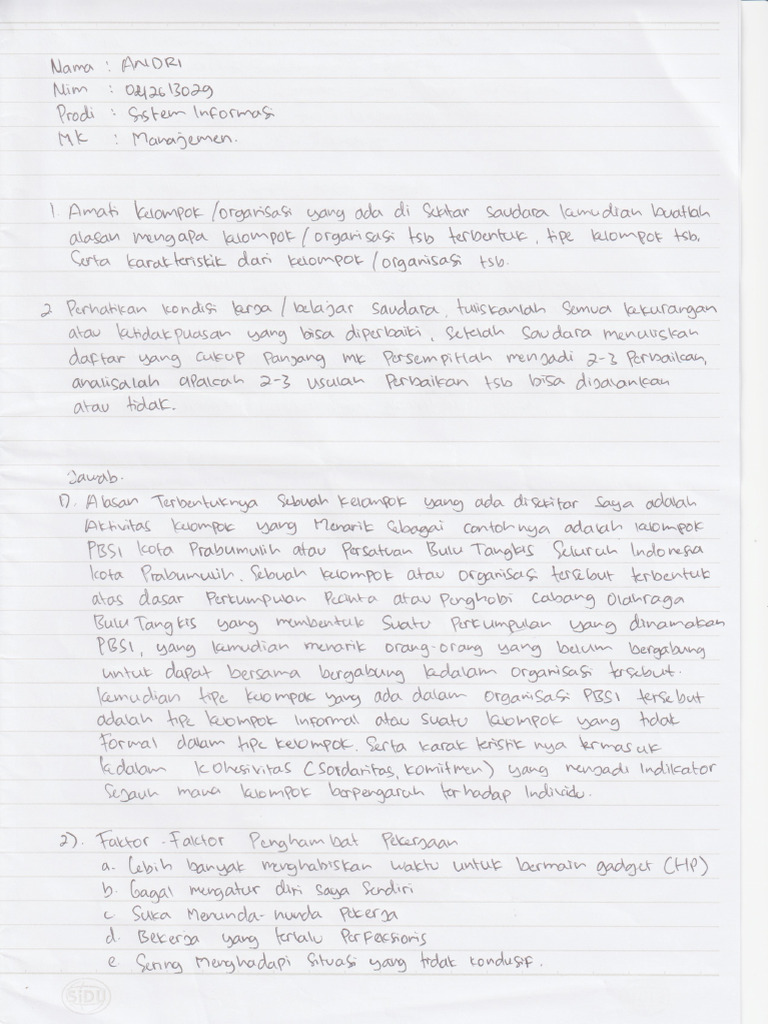 Nama : ANDRI
Nim : 0212613029
Prodi : Sistem Informasi
MK : Manajemen.
1. Amati kelompok/organisasi yang ada di sekitar saudara kemudian buatlah
alasan mengapa kelompok/organisasi tsb terbentuk, tipe kelompok tsb,
Serta karakteristik dari kelompok/organisasi tsb.
2. Perhatikan kondisi kerja/belajar saudara, tuliskanlah semua kekurangan
atau ketidakpuasan yang bisa diperbaiki, setelah saudara menuliskan
daftar yang cukup panjang mk Persempitlah menjadi 2-3 Perbaikan,
analisalah apakah 2-3 usulan Perbaikan tsb bisa dijalankan
atau tidak.
Jawab.
1). Alasan Terbentuknya Sebuah Kelompok yang ada disekitar saya adalah
Aktivitas kelompok yang Menarik Sebagai contohnya adalah kelompok
PBSI Kota Prabumulih atau Persatuan Bulu Tangkis Seluruh Indonesia
kota Prabumulih. Sebuah kelompok atau organisasi tersebut terbentuk
atas dasar Perkumpulan Pecinta atau Penghobi Cabang Olahraga
Bulu Tangkis yang membentuk Suatu Perkumpulan yang dinamakan
PBSI, yang kemudian menarik orang-orang yang belum bergabung
untuk dapat bersama bergabung kedalam organisasi tersebut.
kemudian tipe kelompok yang ada dalam organisasi PBSI tersebut
adalah tipe kelompok Informal atau suatu kelompok yang tidak
Formal dalam tipe kelompok. Serta karakteristik nya termasuk
kedalam Kohesivitas (Sordaritas, Komitmen) yang menjadi Indikator
Sejauh mana kelompok berpengaruh terhadap Individu.
2). Faktor-Faktor Penghambat Pekerjaan
a. Lebih banyak menghabiskan waktu untuk bermain gadget (HP)
b. Gagal mengatur diri saya Sendiri
c. Suka Menunda-nunda Pekerja
d. Bekerja yang terlalu Perfeksionis
e Sering Menghadapi Situasi yang tidak kondusif.
SiDU